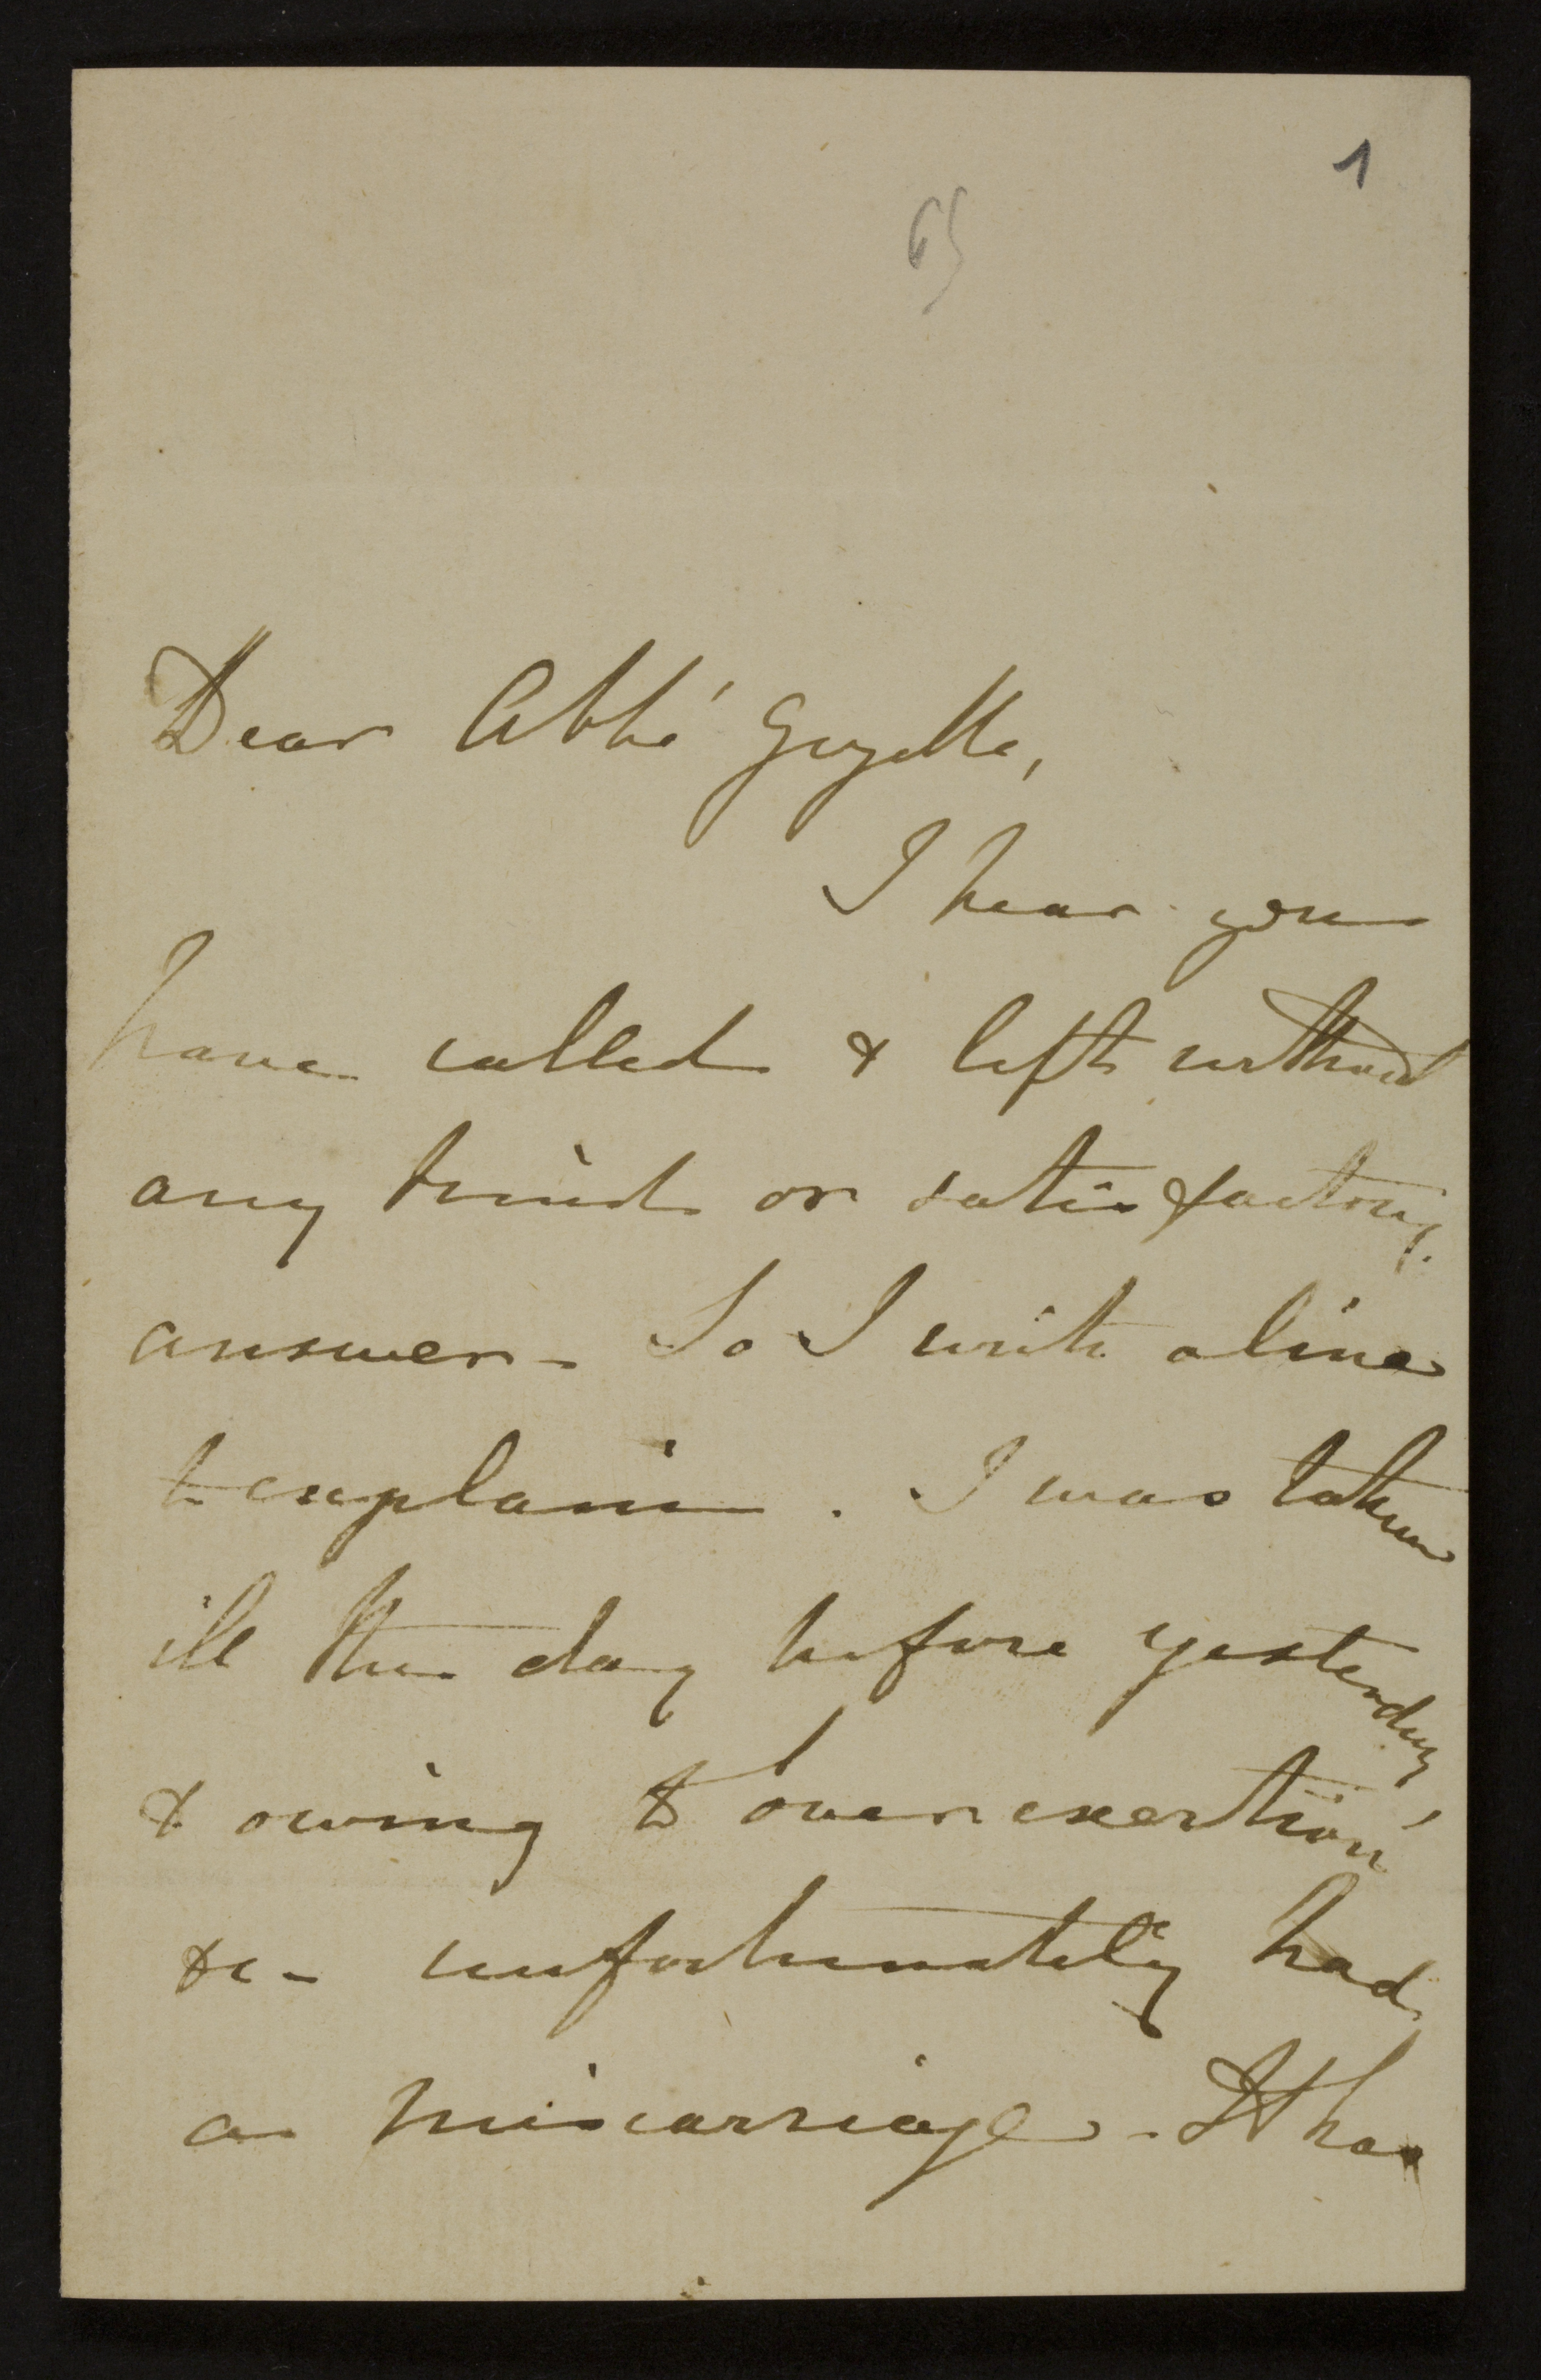 1
65
Dear Abbé Gezelle,
I hear you
have called & left without
any kind or satisfactory
answer - So I write a line
to explain. I was taken
ill the day before yesterday,
& owing to over exertion
&c - unfortunately had
a miscarriage. It has